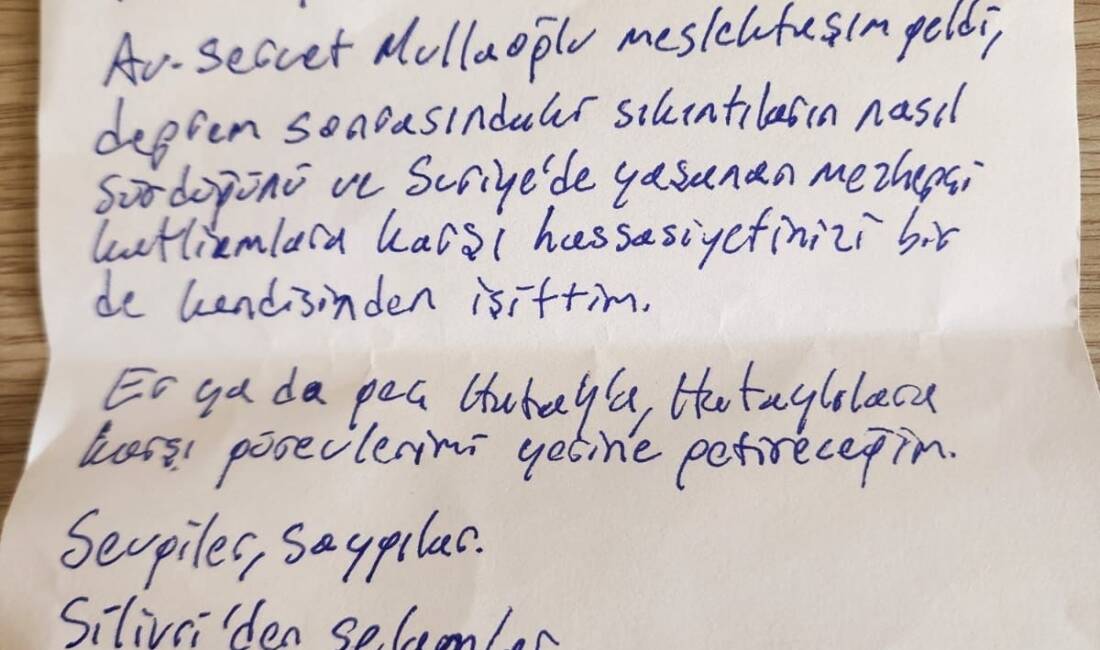 Av. Servet Mullaoğlu meslektaşım geldi,
deprem sonrasındaki sıkıntıların nasıl
sürdüğünü ve Suriye'de yaşanan mezhepçi
katliamlara karşı hassasiyetinizi bir
de kendisinden işittim.
Er ya da geç Hatay'a, Hataylılara
karşı görevlerimi yerine getireceğim.
Sevgiler, saygılar.
Silivri'den selamlar